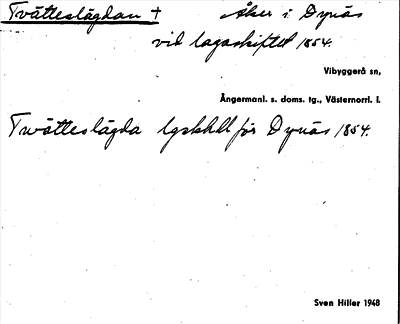 Tvätteslägdan † Åker i Dynäs
vid lagaskiftet 1854.
Vibyggerå sn,
Ångermanl. s. doms. tg., Västernorrl. l.
Twätteslägda lgskhdl för Dynäs 1854.
Sven Hiller 1948